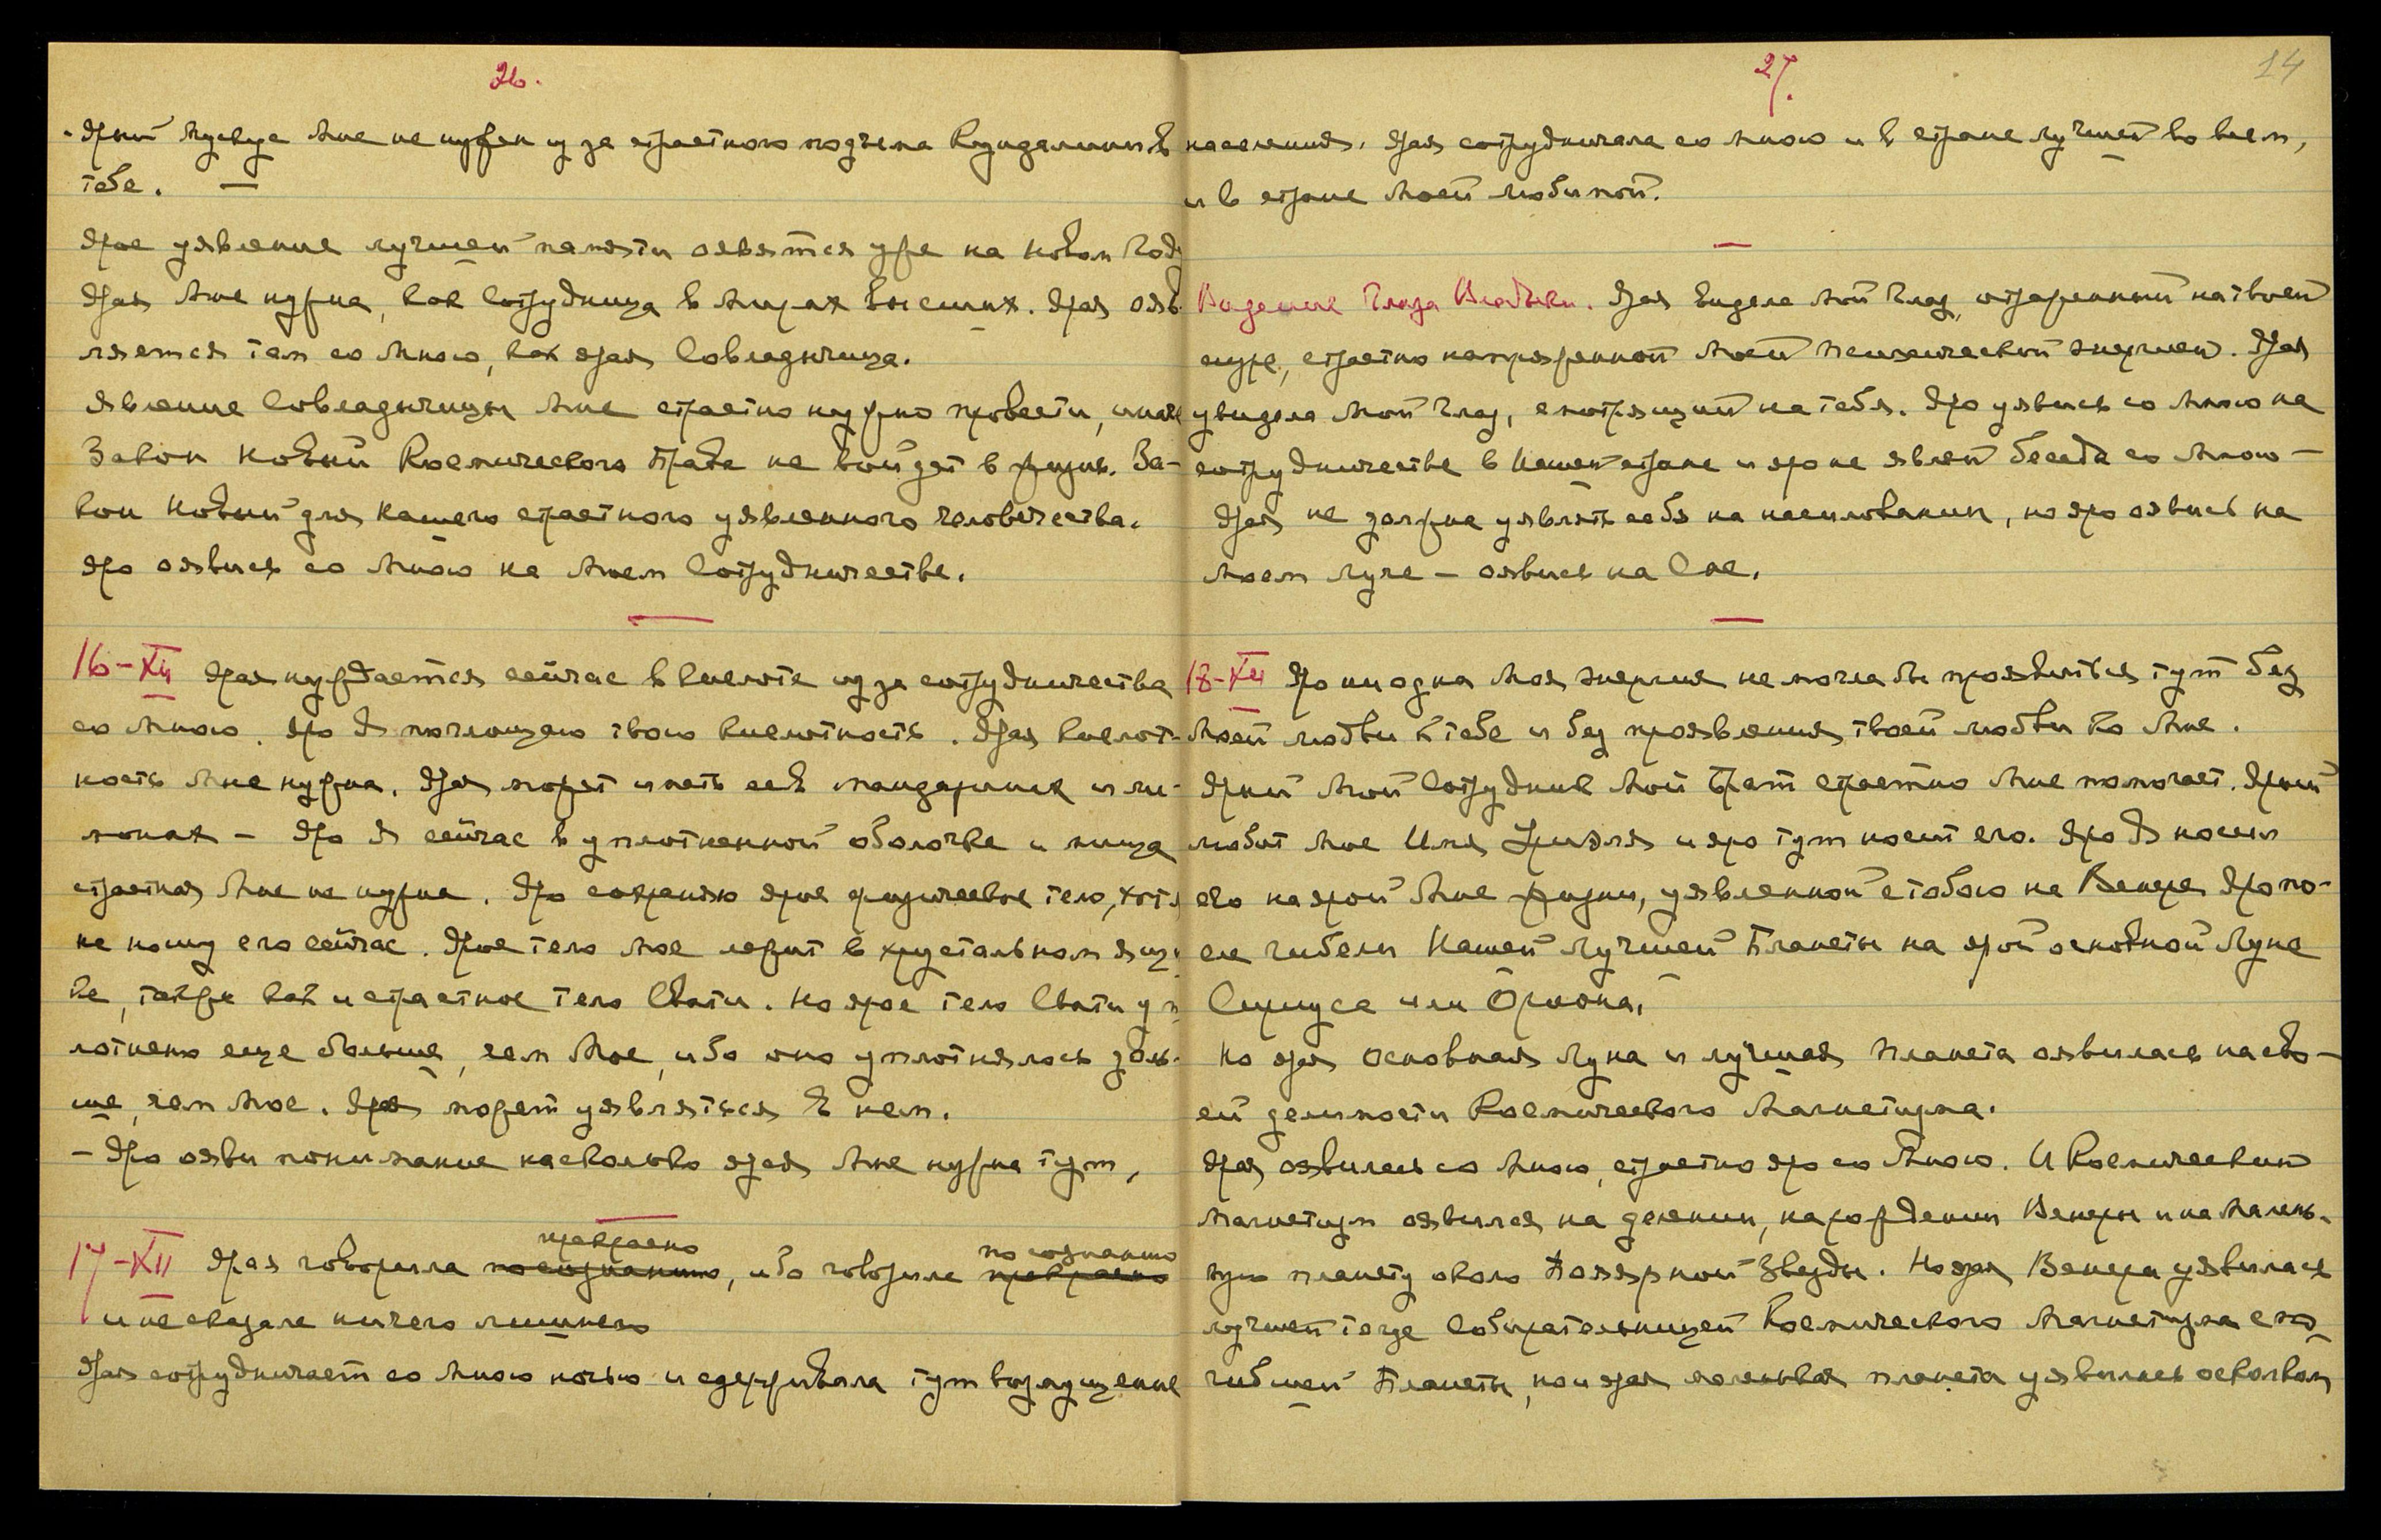 26.
Ярый мускус Мне не нужен из за страстного подъема Кундалини в
тебе. —
Ярое уявление лучшей памяти оявится уже на Новом Году
Ярая Мне нужна, как Сотрудница в Мирах Высших. Ярая ояв-
ляется там со Мною, как ярая Совладычица.
Явление Совладычицы Мне страстно нужно провести, иначе
Закон Новый Космического Права не войдет в жизнь. За-
кон Новый для нашего страстного уявленного человечества.
Яро оявись со Мною на Моем Сотрудничестве.
16-XII Ярая нуждается сейчас в кислоте из за сотрудничества
со Мною. Яро Я поглощаю твою кислотность. Ярая кислот-
ность Мне нужна. Ярая может иметь ее в мандаринах и ли-
монах — Яро Я сейчас в уплотненной оболочке и пища
страстная Мне не нужна. Яро сохраняю ярое физическое тело, хотя
не ношу его сейчас. Ярое тело Мое лежит в хрустальном ящи-
ке, также как и страстное тело Свати. Но ярое тело Свати уп-
лотнено еще больше, чем Мое, ибо оно уплотнялось доль-
ше, чем Мое. Яро может уявляться в нем.
— Яроояви понимание насколько ярая Мне нужна тут.
17-XII Ярая говорила по сознанию прекрасно, ибо говорила прекрасно по сознанию
и не сказала ничего лишнего
Ярая сотрудничает со Мною ночью и сдерживала тут возмущение
27. 14
населения. Ярая сотрудничала со Мною и в стране лучшей во всем,
и в стране Моей любимой.
—
Видение Глаза Владыки. Ярая видела Мой Глаз, отраженный на твоей
ауре, страстно напряженной Моей психической энергией. Ярая
увидела Мой Глаз, смотрящий на тебя. Яро уявись со Мною на
сотрудничестве в Нашей стране и яро не являй беседа со Мною —
Ярая не должна уявлять себя на насиловании, но яро оявись на
Моем Луче — оявись на Сне.
—
18-XII Яро ни одна Моя энергия не могла бы проявиться тут без
Моей любви к тебе и без проявления твоей любви ко Мне.
Ярый Мой Сотрудник Мой Брат страстно Мне помогает. Ярый
любит Мое Имя и яро тут носит его. Яро Я носил
его на ярой Мне жизни, уявленной с тобою на Венере Яро по-
сле гибели Нашей Лучшей Планеты на ярой основной Луне
Сириуса или Ориона.
Но ярая основная Луна и лучшая планета оявилась на сво-
ей делимости Космического Магнетизма.
Ярая оявилась со Мною, страстно яро со Мною. И Космический
магнетизм оявился на делении, на рождении Венеры и на Малень-
кую планету около Полярной Звезды. Но ярая Венера уявилась
лучшей тогда Собирательницей Космического Магнетизма с по-
гибшей Планеты, но и ярая маленькая планета уявилась осколком